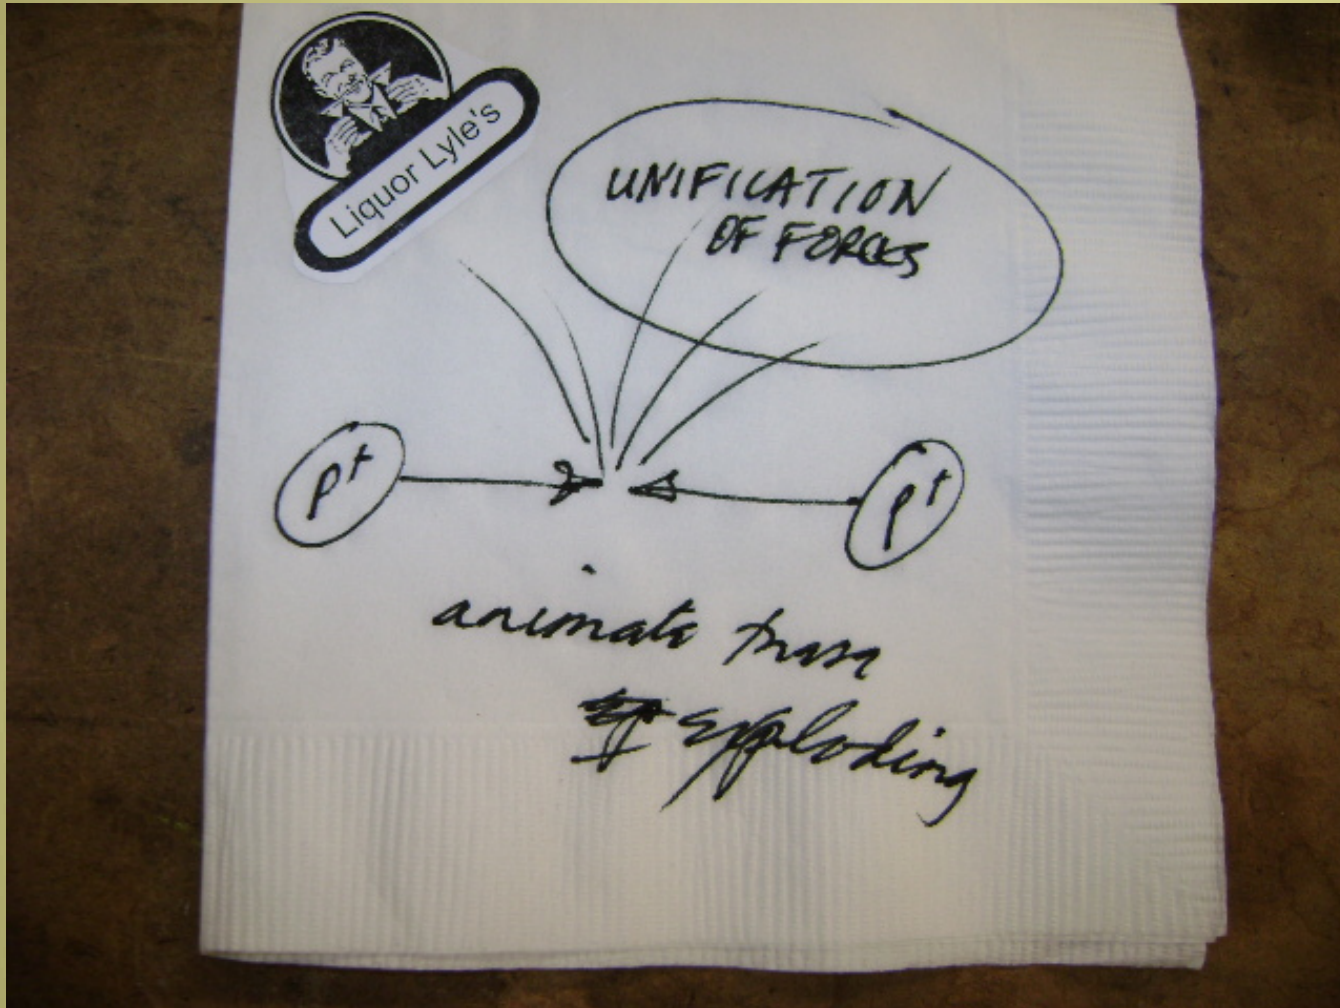 Liquor Lyle's
UNIFICATION
OF FORCES
P+
P+
animate
exploding